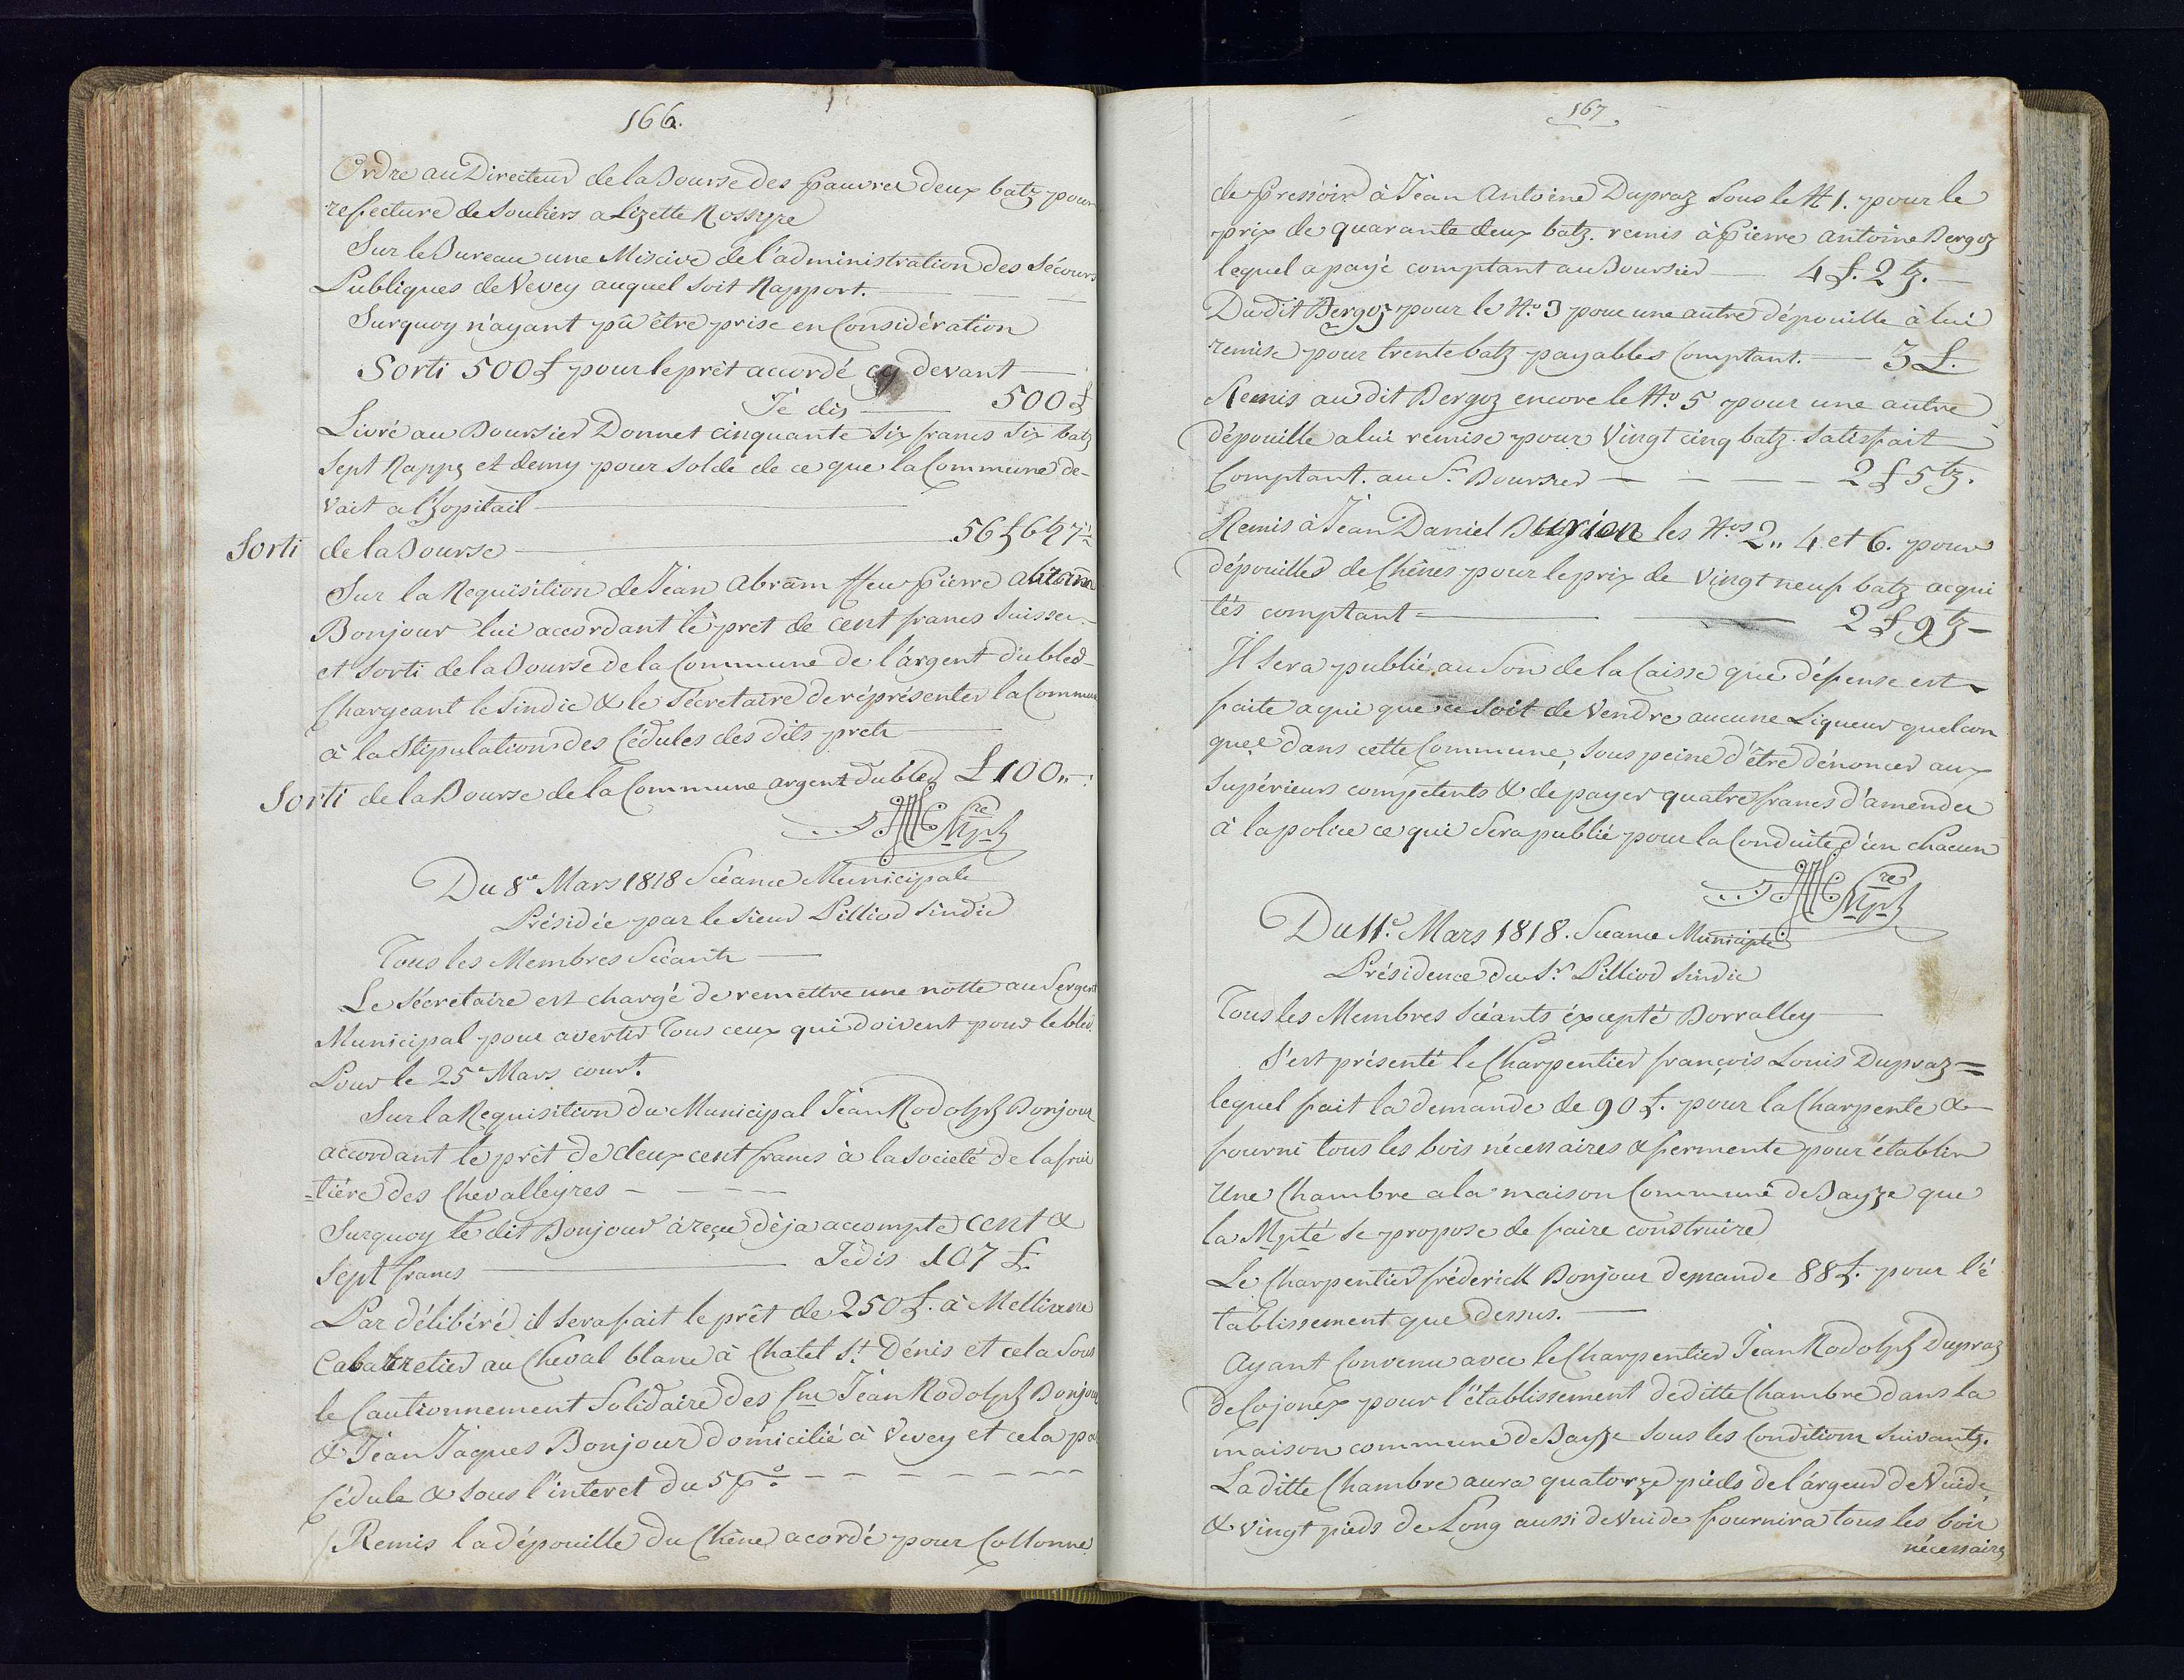 166.
Ordre au Directeur de la Bourse des pauvres deux batz pour
refecture de Souliers a Lizette Rossyre
Sur le Bureau une Miscive de l'administration des Sécours
Publiques de Vevey auquel soit Rapport.
Surquoy n'ayant pû être prise en Considération
Sorti 500 £ pour le prêt accordé cy devant —
Je dis — 500 £
Livré au Boursier Donnet cinquante six francs six batz
Sept Rappz et demy pour solde de ce que la Commune de-
vait a l'hopitail —
56 £ 6 bz 7½
Sorti de la Bourse —
Sur la Requisition de Jean Abram ffeu Pierre Antoine
Bonjour lui accordant le prêt de cent francs Suisses.
et Sorti de la Bourse de la Commune de l'argent du bled
Chargeant le Sindic & le Sécretaire de réprésenter la Commune
à la Stipulation des Cédules des dits prets
Sorti de la Bourse de la Commune argent du bled £ 100,,
Mplz re
Du 8e Mars 1818 Séance Municipale
Présidée par le Sieur Pilliod Sindic
Tous les Membres Séants —
Le Sécretaire est chargé de remettre une notte au Sergent
Municipal pour avertir Tous ceux qui doivent pour le bled
Pour le 25e Mars court.
Sur la Requisition du Municipal Jean Rodolph Bonjour
accordant le prêt de deux cent francs à la Societé de la frui
-tière des Chevalleyres —
Surquoy le dit Bonjour à reçu dèja accompte cent &
Sept francs — Jedis 107 £.
Par délibéré il sera fait le prêt de 250 £. à
Cabaretier au Cheval blanc à Chatel St. Dénis et cela Sous
le Cautionnement Solidaire des Jean Rodolph Bonjour
& Jean Jaques Bonjour domicilié à Vevey et cela par
Cédule & sous l'interet du 5 p% —
Remis la dépouille du Chêne acordé pour Collonne
167
de pressoir à Jean Antoine Dupraz sous le N 1. pour le
prix de quarante deux batz. remis à Pierre Antoine Bergoz
lequel a payé comptant au Boursier — 4 £. 2 bz. —
Du dit Bergoz pour le No. 3 pour une autre dépouille à lui
remise pour trente batz payables Comptant. — 3 £.
Remis au dit Bergoz encore le No. 5 pour une autre
dépouille a lui remise pour Vingt cinq batz. Satisfait
Comptant. au Sr. Boursier — 2 £ 5 bz.
Remis à Jean Daniel les Nos. 2,, 4 et 6. pour
dépouilles de Chênes pour le prix de Vingt neuf batz acqui
tés comptant — 2 £ 9 bz —
Il sera publié au Son de la Caisse que défense est
faite a qui que ce soit de Vendre aucune Liqueur quelcon
que dans cette Commune, sous peine d'être dénoncer aux
Supérieurs compétents & de payer quatre francs d'amendes
à la police ce qui Sera publié pour la Conduite d'un chacun
Mplz re
Du 11e. Mars 1818. Séance Municiple
Présidence du Sr. Pilliod Sindic
Tous les Membres Séants éxcepté Borralley
S'est présenté le Charpentier françois Louis Dupraz =
lequel fait la demande de 90 £. pour la Charpente &
fourni tous les bois nécessaires & fermente pour établir
Une Chambre a la maison Commune de Bayze que
la Mpté se propose de faire construire
Le Charpentier fréderick Bonjour demande 88 £. pour l'é
tablissement que dessus. —
Ayant Convenu avec le Charpentier Jean Rodolph Dupraz
de Cojonex pour l'établissement de ditte Chambre dans la
maison commune de Bayze sous les Conditions suivants.
La ditte Chambre aura quatorze pieds de largeur de Vuide,
& vingt pieds de Long aussi de Vuide fournira tous les bois
nécessaires